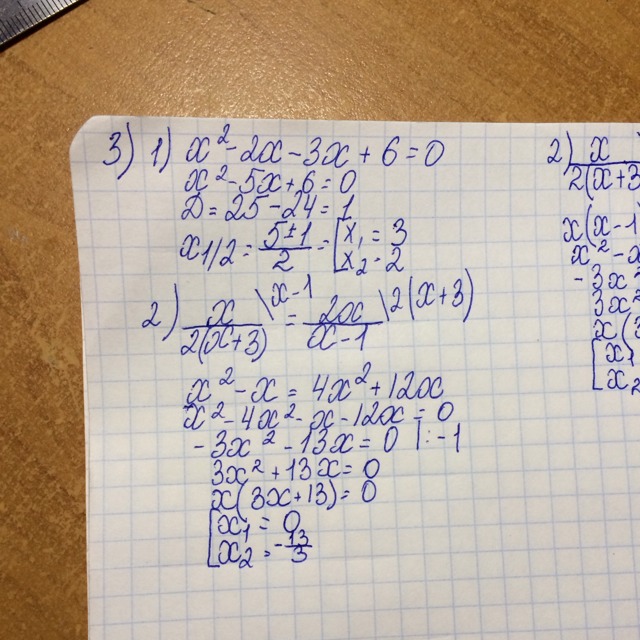 3) 1) x² - 2x - 3x + 6 = 0
x² - 5x + 6 = 0
D = 25 - 24 = 1
x1/2 = (5 ± 1)/2 = [x₁ = 3
x₂ = 2
2) x/(2(x+3)) \x-1 = 2x/(x-1) \2(x+3)
x² - x = 4x² + 12x
x² - 4x² - x - 12x = 0
-3x² - 13x = 0 |: -1
3x² + 13x = 0
x(3x + 13) = 0
[x₁ = 0
x₂ = -13/3
2) x
2(x+3
x(x-1
x² - x
-3x
3x²
x(3
[x
x₂